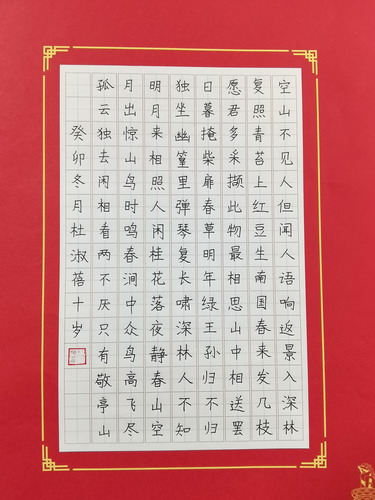 空山不见人但闻人语响返景入深林
复照青苔上红豆生南国春来发几枝
愿君多采撷此物最相思山中相送罢
日暮掩柴扉春草明年绿王孙归不归
独坐幽篁里弹琴复长啸深林人不知
明月来相照人闲桂花落夜静春山空
月出惊山鸟时鸣春涧中众鸟高飞尽
孤云独去闲相看两不厌只有敬亭山
癸卯冬月杜淑蓓十岁